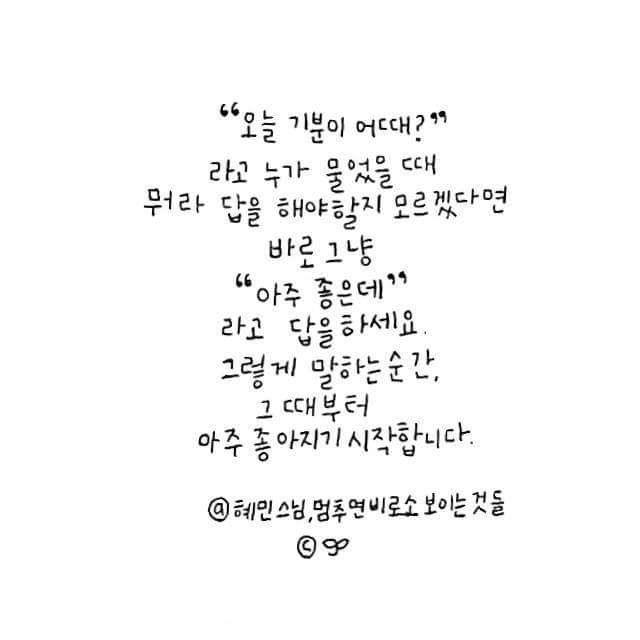 “오늘 기분이 어때?”
라고 누가 물었을 때
뭐라 답을 해야할지 모르겠다면
바로 그냥
“아주 좋은데”
라고 답을하세요.
그렇게 말하는순간,
그 때부터
아주 좋아지기시작합니다.
@혜민스님,멈추면비로소보이는것들
©